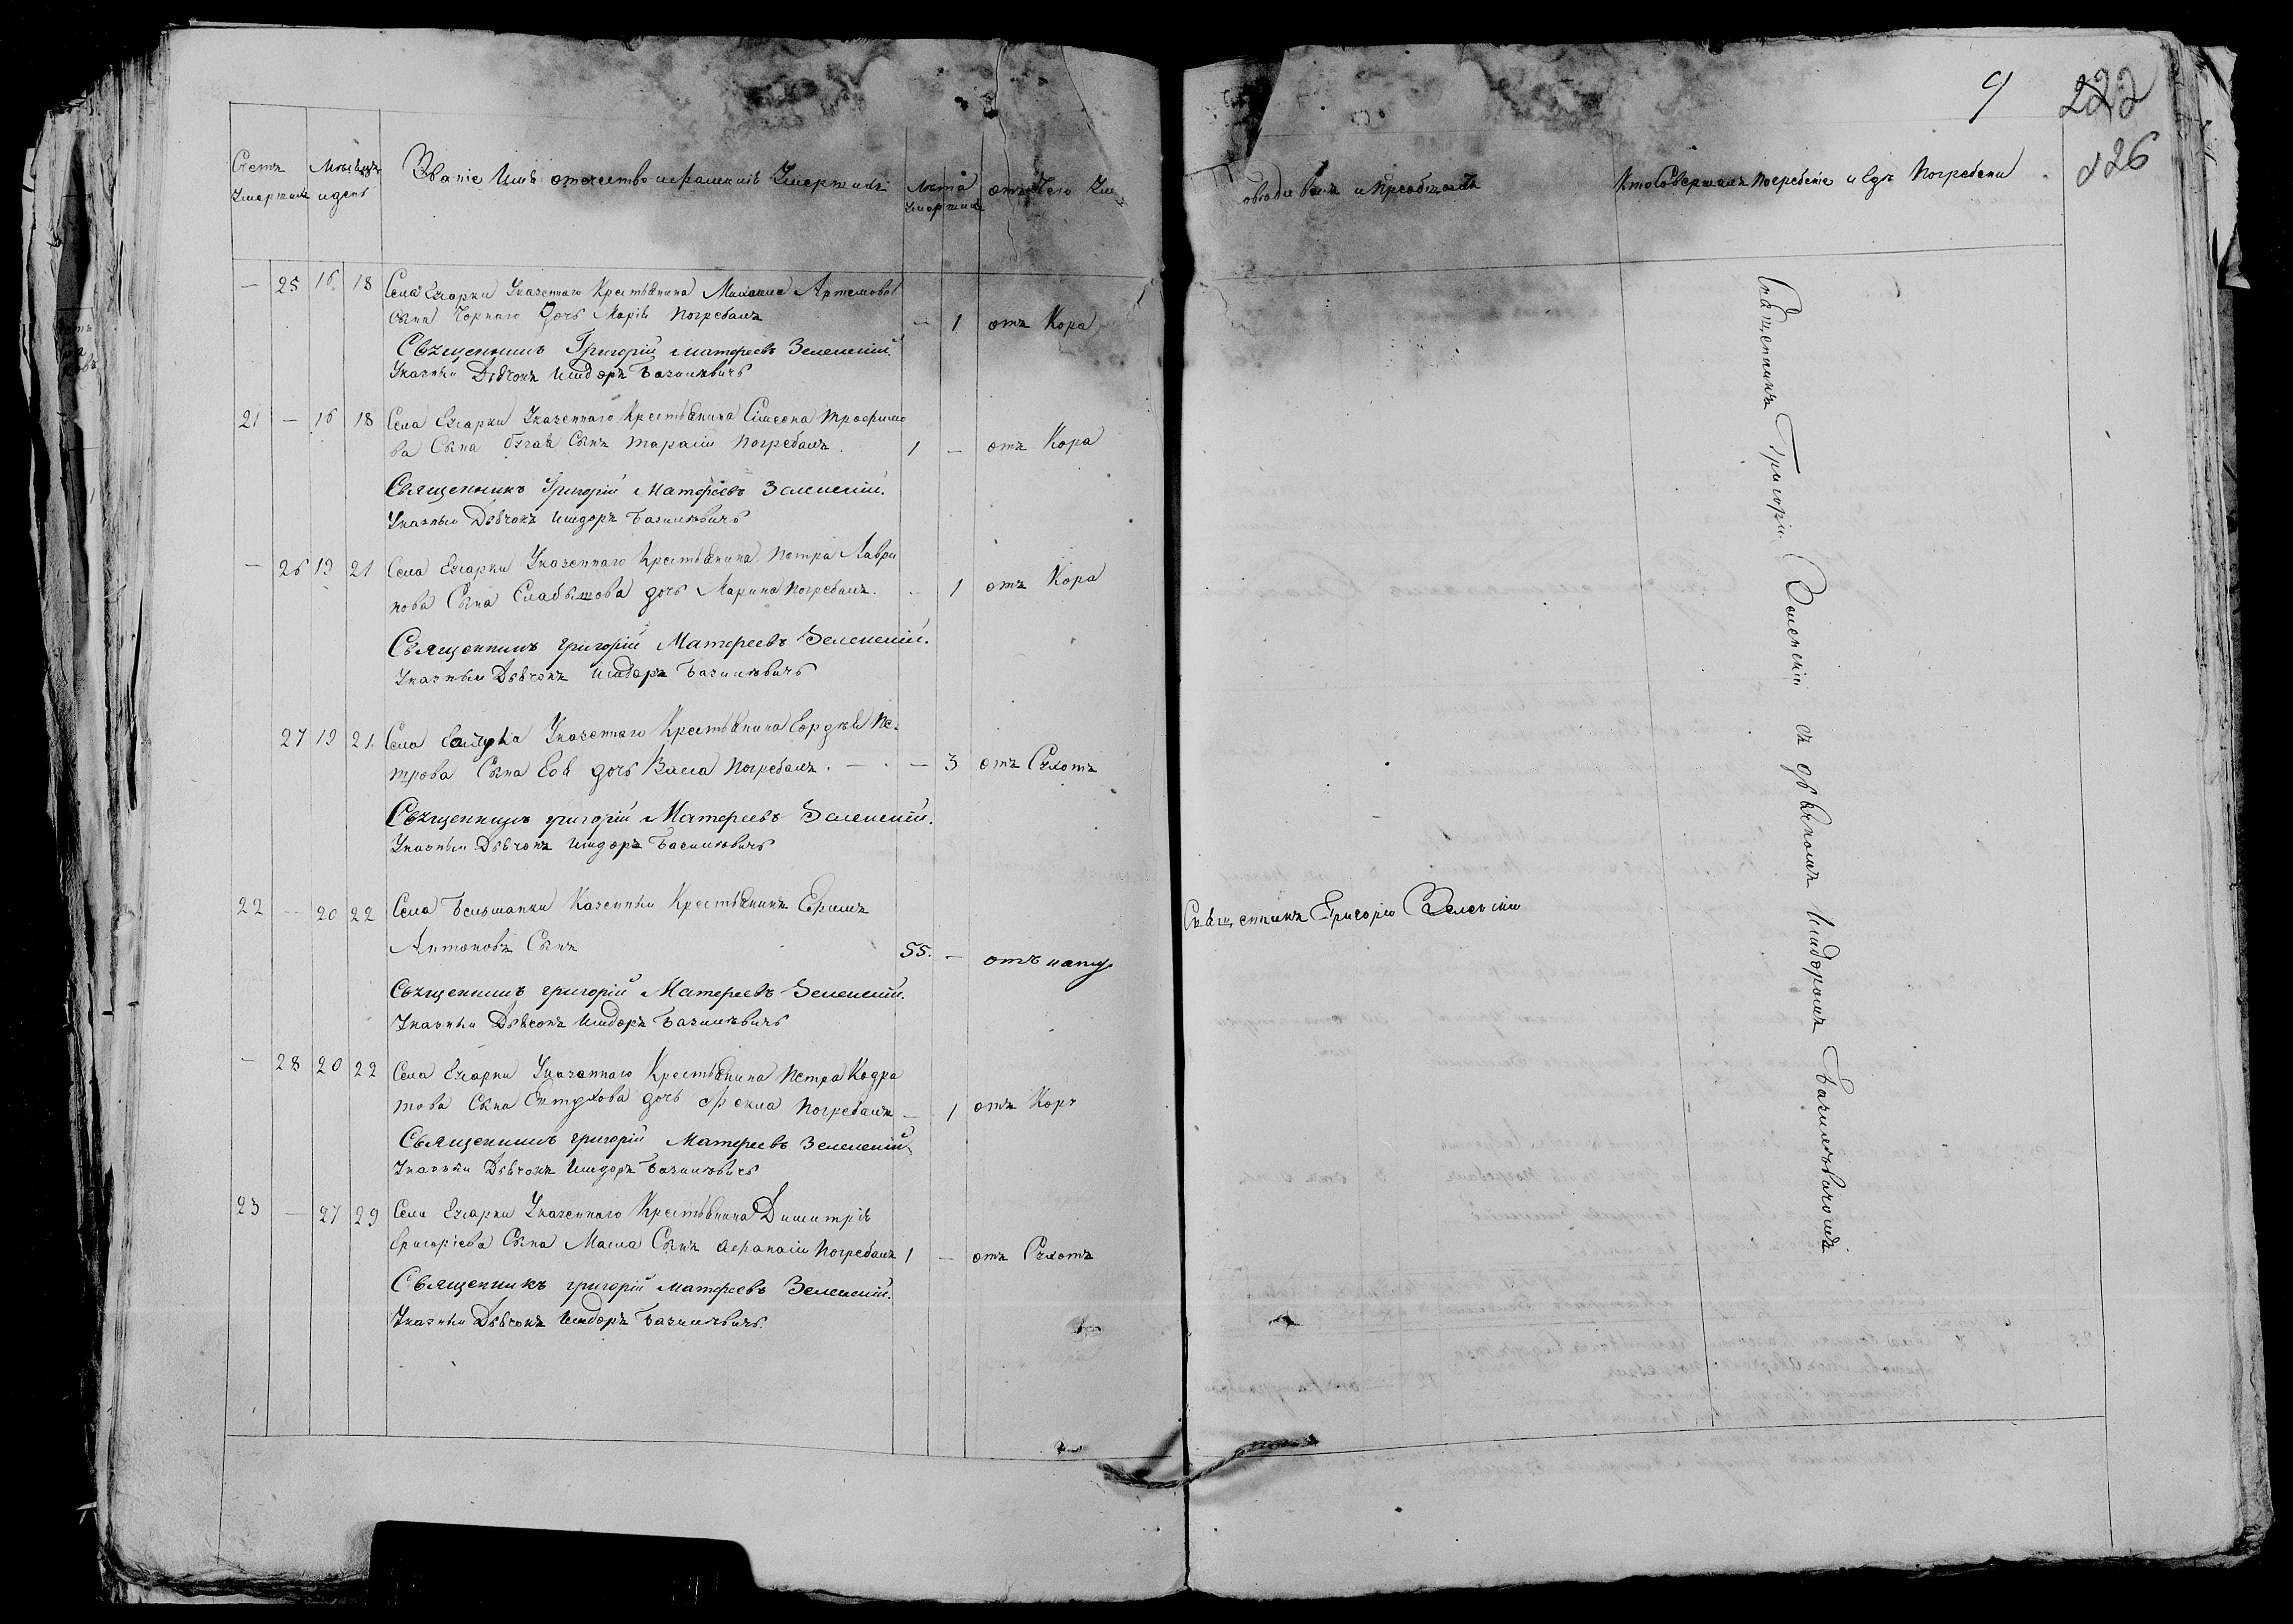 9 222
226
Счетъ Умершихъ
Мѣсяцъ и день
Званіе Имѣ отечество и фамилія Умершихъ
Лѣта Умершихъ
отъ чего Ум
овѣдывалъ и Пріобщалъ
Кто Совершалъ Погребеніе и где Погребены
— 25 16 18 Села Егорки Указеннаго Крестьянина Михаила Артемовов
Сына Чорнаго Дочь Марія погребалъ — 1 отъ Кора
Священникъ Григорій Матфеевъ Зеленскій.
Указный Дьячокъ Исидоръ Базилевичъ
21 — 16 18 Села Егорки Указеннаго Крестьянина Симеона Трофимо
ва Сына Сынъ Тарасій погребалъ. 1 — отъ Кора
Священникъ Григорій Матфеевъ Зеленскій.
Указный Дьячокъ Исидоръ Базилевичъ
— 26 19 21 Села Егорки Указеннаго Крестьянина Петра Лаври
нова Сына Слабытова дочь Марина погребалъ. — 1 отъ Кора
Священникъ Григорій Матфеевъ Зеленскій.
Указный Дьячокъ Исидоръ Базилевичъ
27 19 21 Села Указеннаго Крестьянина Гордѣя Пе-
трова Сына дочь Васса погребалъ. — 3 отъ Сухотъ
Священникъ Григорій Матфеевъ Зеленскій.
Указный Дьячокъ Исидоръ Базилевичъ
22 — 20 22 Села Бельманки Казенный Крестьянинъ Ефимъ
Антоновъ Сынъ 55. — отъ нату
Священникъ Григорій Зеленскій
Священникъ Григорій Матфеевъ Зеленскій.
Указный Дьячокъ Исидоръ Базилевичъ
— 28 20 22 Села Егорки Указеннаго Крестьянина Петра Кодра
това Сына дочь Фекла погребалъ — 1 отъ Кора
Священникъ Григорій Матфеевъ Зеленскій.
Указный Дьячокъ Исидоръ Базилевичъ
23 — 27 29 Села Егорки Указеннаго Крестьянина Димитрія
Григоріева Сына Маша Сынъ Афанасій погребалъ 1 — отъ Сухотъ
Священникъ Григорій Матфеевъ Зеленскій.
Указный Дьячокъ Исидоръ Базилевичъ.
Священникъ Григорій Зеленскій съ дьячкомъ Исидоромъ Базилевичомъ